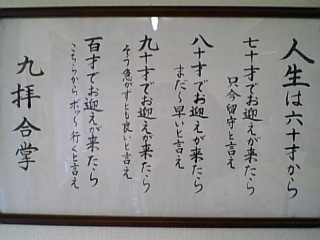 人生は六十才から
七十才でお迎えが来たら
只今留守と言え
八十才でお迎えが来たら
まだ〜早いと言え
九十才でお迎えが来たら
そう急がずとも良いと言え
百才でお迎えが来たら
こちらからボツ〜行くと言え
九拝合掌